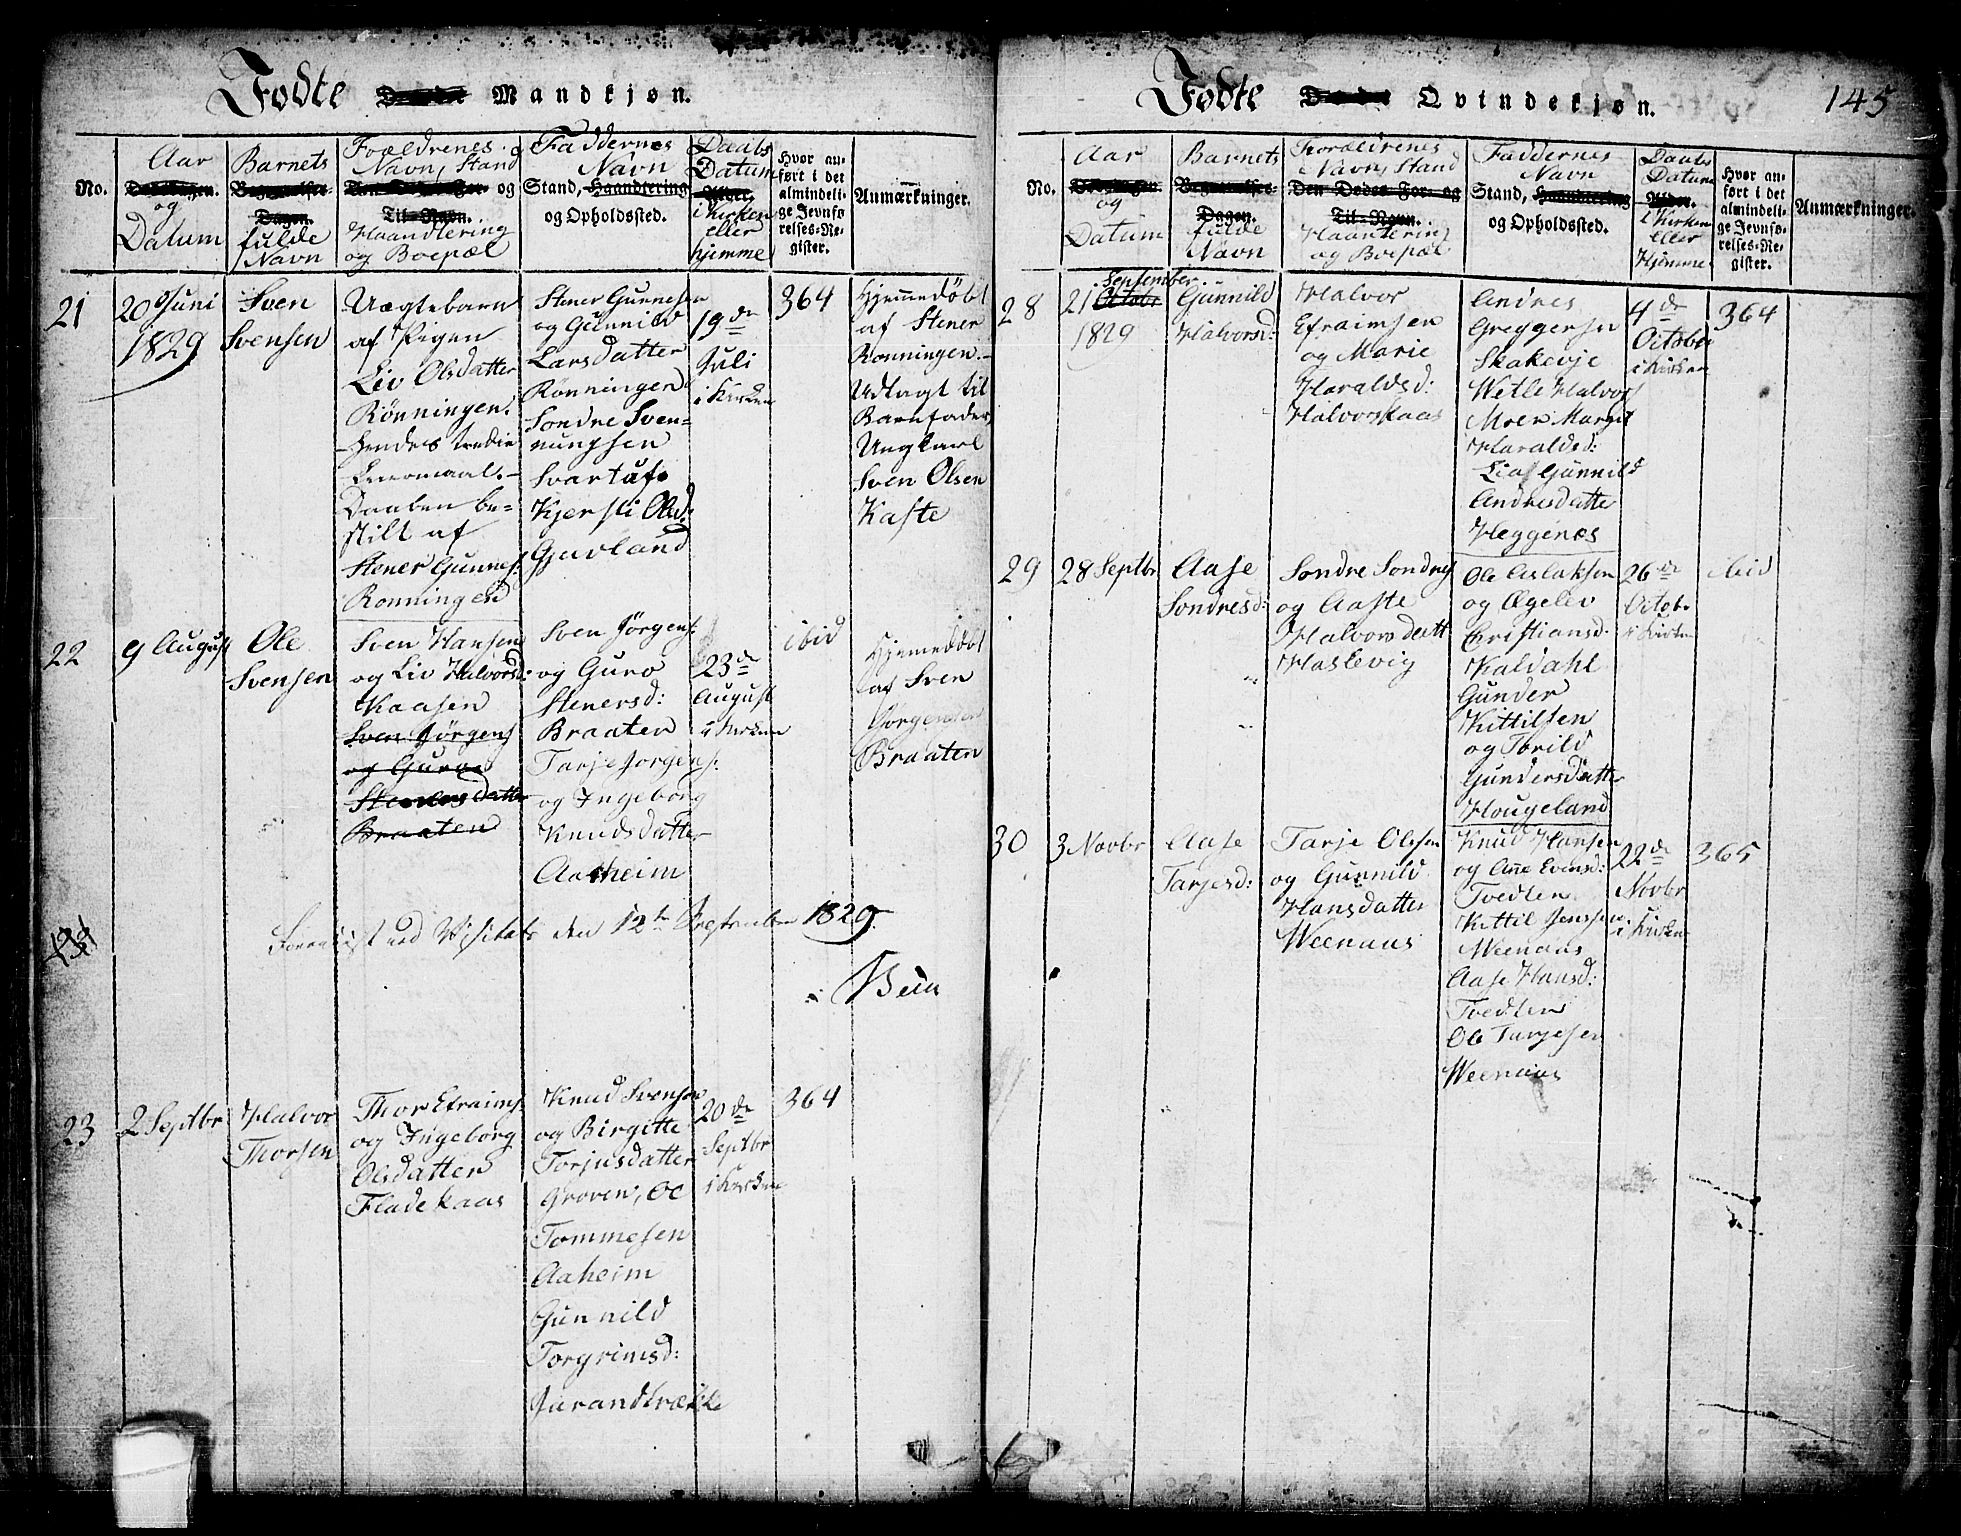 Fødte Døde Mandkjøn.
No.
Aar
Dødsdagen.
og
Datum
Barnets
Begravelses-
Dagen.
fulde
Navn
Forældrenes
Navn, Stand
Den Dødes For- og
Til-Navn.
Haandtering
og Boepæl
Faddernes
Navn
Stand, Haandtering
og Opholdssted.
Daabs
Datum
Alder.
i Kirken
eller
hjemme
Hvor an-
ført i det
almindeli-
ge Jevnfø-
relses-Re-
gister.
Anmærkninger.
21
20 Juni
1829
Sven
Svensen
Uægtebarn
af Pigen
Liv Olsdatter
Rönningen.
Hendes tredie
Leiermaal.-
Daaben be-
stilt af
Stener Gunnes:
Ronningen
Stener Gunnesen
og Gunnild
Larsdatter
Rönningen
Sondre Sven-
nungsen
Svartuf
Kjersti Olsd:
Gjuvland
19de
Juli
i Kirken
364
Hjemmedøbt
af Stener
Ronningen.-
Udlagt til
Barnfader
Ungkarl
Sven Olsen
Kaste
22
9 August
Ole
Svensen
Sven Hansen
og Liv Halvorsd:
Kaasen
Sven Jörgens
og Guroe
Stenersdatter
Braaten
Sven Jörgens:
og Guro
Stenersd:
Braaten
Tarje Jorgens:
og Ingeborg
Knudsdatter
Aasheim
23de
August
i Kirken
ibid
Hjemmedöbt
af Sven
Jörgensen
Braaten
den 12te September 1829.
23
2 Septbr
Halvor
Thorsen
Thor Efraims:
og Ingeborg
Olsdatter
Fladekaas
Knud Svensen
og Birgitte
Torjusdatter
Groven, Ole
Tommesen
Aaheim
Gunnild
Torgrimsd:
Jurandbrække
20de
Septbr
i Kirken
364
Fødte Døde Qvindekjøn.
145
No.
Aar
Dødsdagen.
og
Datum
Barnets
Begravelses-
Dagen.
fulde
Navn
Forældrenes
Navn, Stand
Den Dødes For- og
Til-Navn.
Haantering
og Boepæl
Faddernes
Navn
Stand, Haandtering
og Opholdssted.
Daabs
Datum
Alder.
i Kirken
Eller
Hjemme
Hvor an-
ført i det
almindeli-
ge Jevnfø-
relses-Re-
gister.
Anmærkninger.
28
September
21 Octobr
1829
Gunnild
Halvorsd:
Halvor
Efraimsen
og Marie
Haraldsd:
Halvorskaas
Andres
Greggersen
Skakevje
Wetle Halvors
Moen Margit
Haraldsd:
Gunnild
Andresdatte
Heggenes
4de
October
i Kirken
364
29
28 Septbr
Aase
Sondresd:
Sondre Sondres
og Aaste
Halvorsdatt
Haslevig
Ole Aslaksen
og Ægelev
Christiansd.
Kaldahl
Gunder
Kittilsen
og Torild
Gundersdatter
Hougeland
26de
Octob.
i Kirken
ibid
30
3 Novbr
Aase
Tarjesd:
Tarje Olesen
og Gunnild
Hansdatter
Weenaas
Knud Hansen
og Anne Evensd:
Tvedten
Kittil Jenssen
Weenaas
Aase Hansd:
Tvedten
Ole Tarjesen
Weenaas
22de
Novbr
i Kirken
365